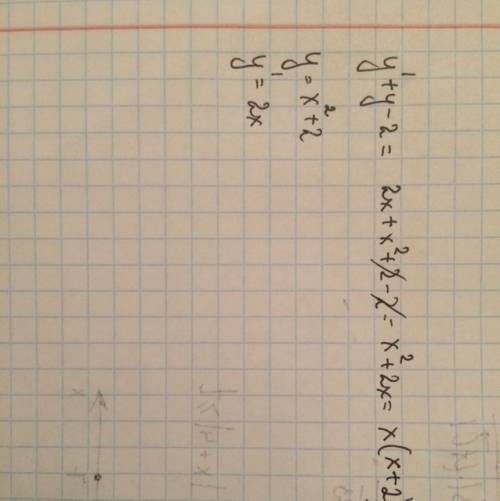 y' + y - 2 = 2x + x² + 2 - 2 = x² + 2x = x(x+2)
y = x² + 2
y' = 2x